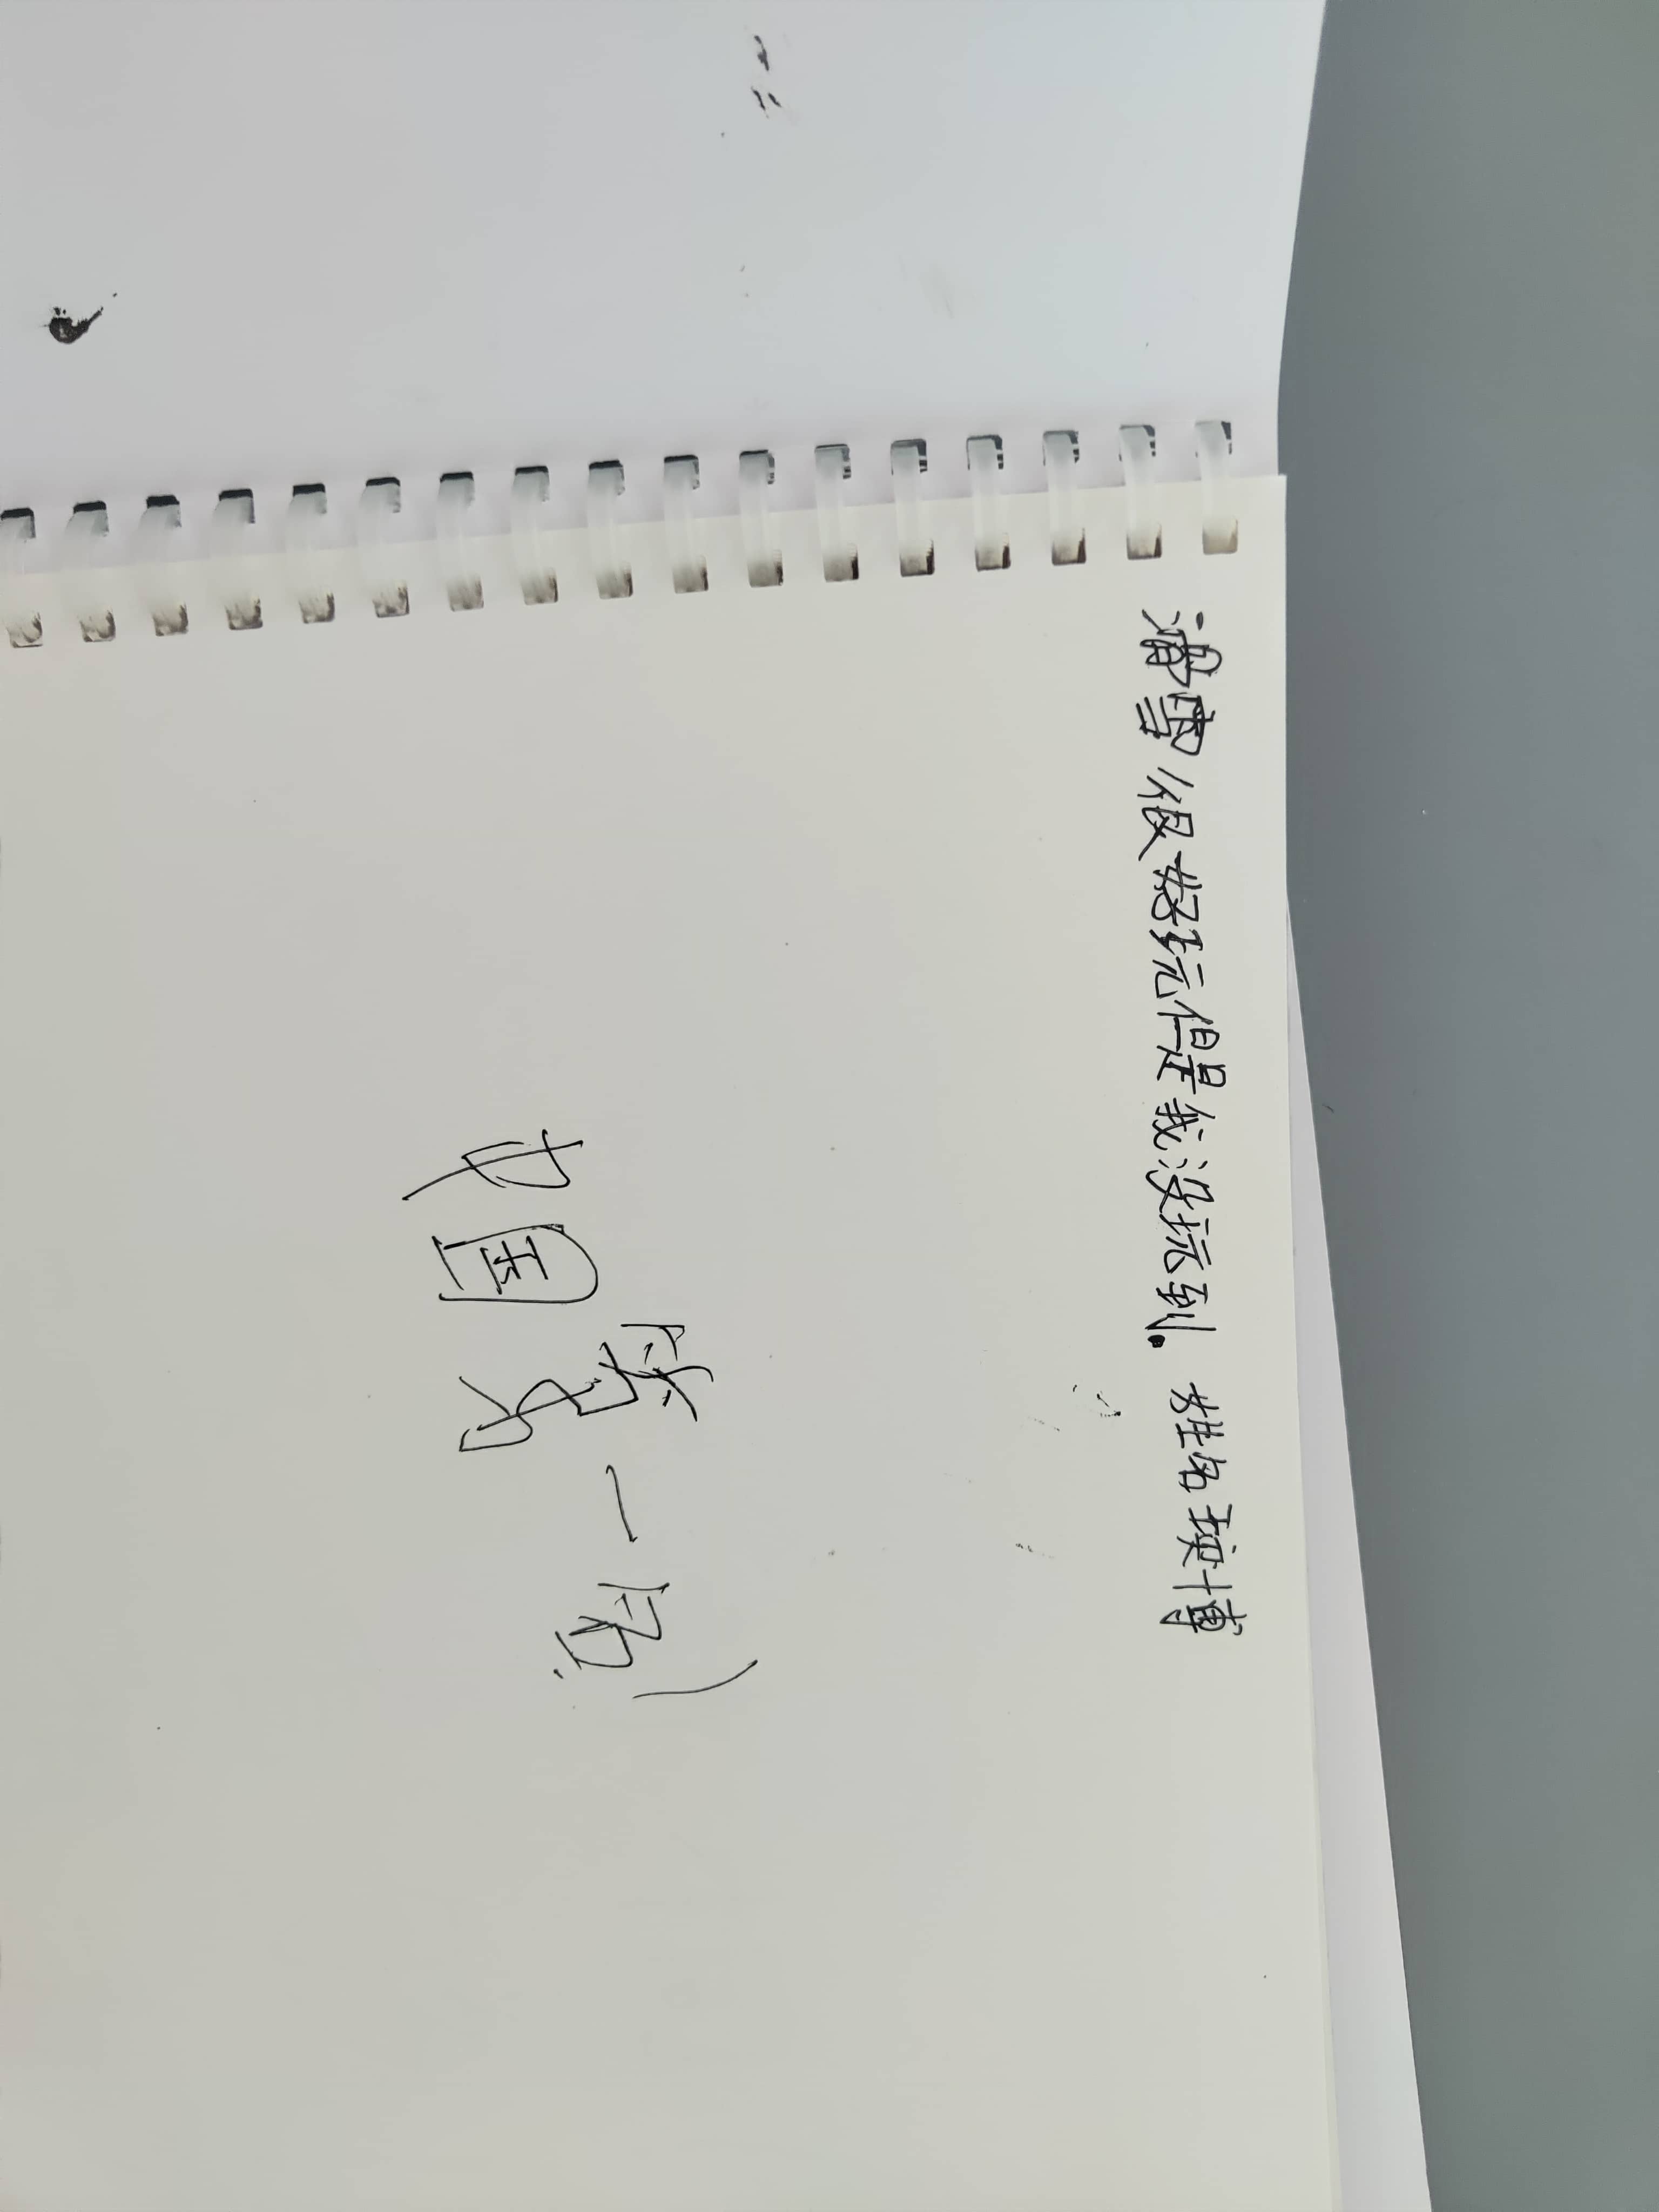 滑雪很好玩但是我没玩到. 姓名项博
中国第一